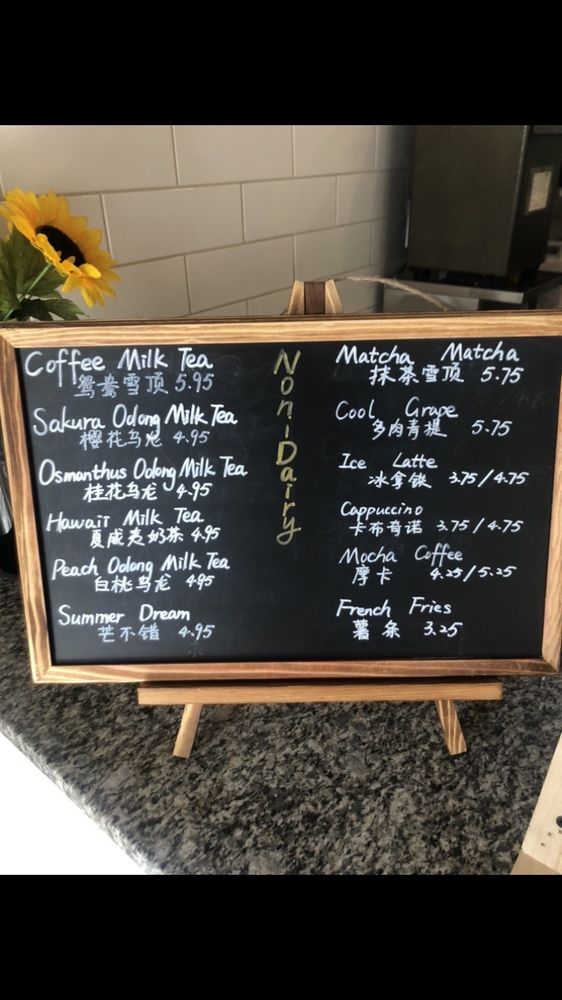 Coffee Milk Tea
鸳鸯雪顶 5.95
Sakura Oolong Milk Tea
樱花乌龙 4.95
Osmanthus Oolong Milk Tea
桂花乌龙 4.95
Hawaii Milk Tea
夏威夷奶茶 4.95
Peach Oolong Milk Tea
白桃乌龙 4.95
Summer Dream
芒不错 4.95
Non-Dairy
Matcha Matcha
抹茶雪顶 5.75
Cool Grape
多肉青提 5.75
Ice Latte
冰拿铁 3.75/4.75
Cappuccino
卡布奇诺 3.75/4.75
Mocha Coffee
摩卡 4.25/5.25
French Fries
薯条 3.25